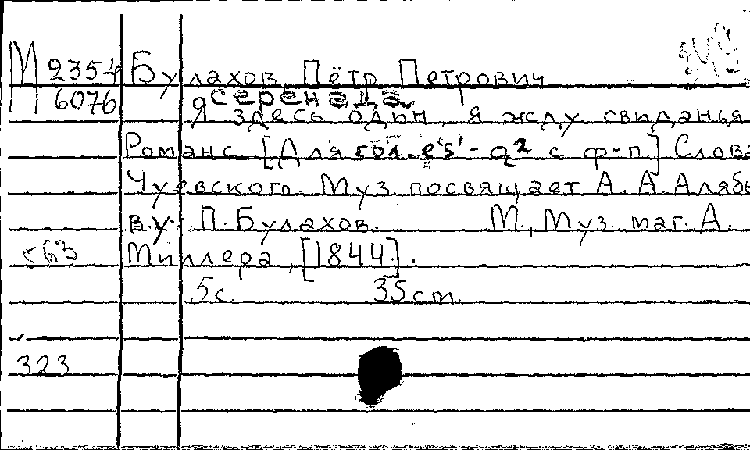 М 2354 Булахов, Пётр Петрович
П 6076 Серенада
Я здесь один, я жду свиданья
Романс. [Для сол. es'-g² с ф-п.] Слова
Чуевского. Муз посвящает А. А. Алябь
ву: П. Булахов. М., Муз маг. А.
Миллера, [1844].
5с. 35cm.
323